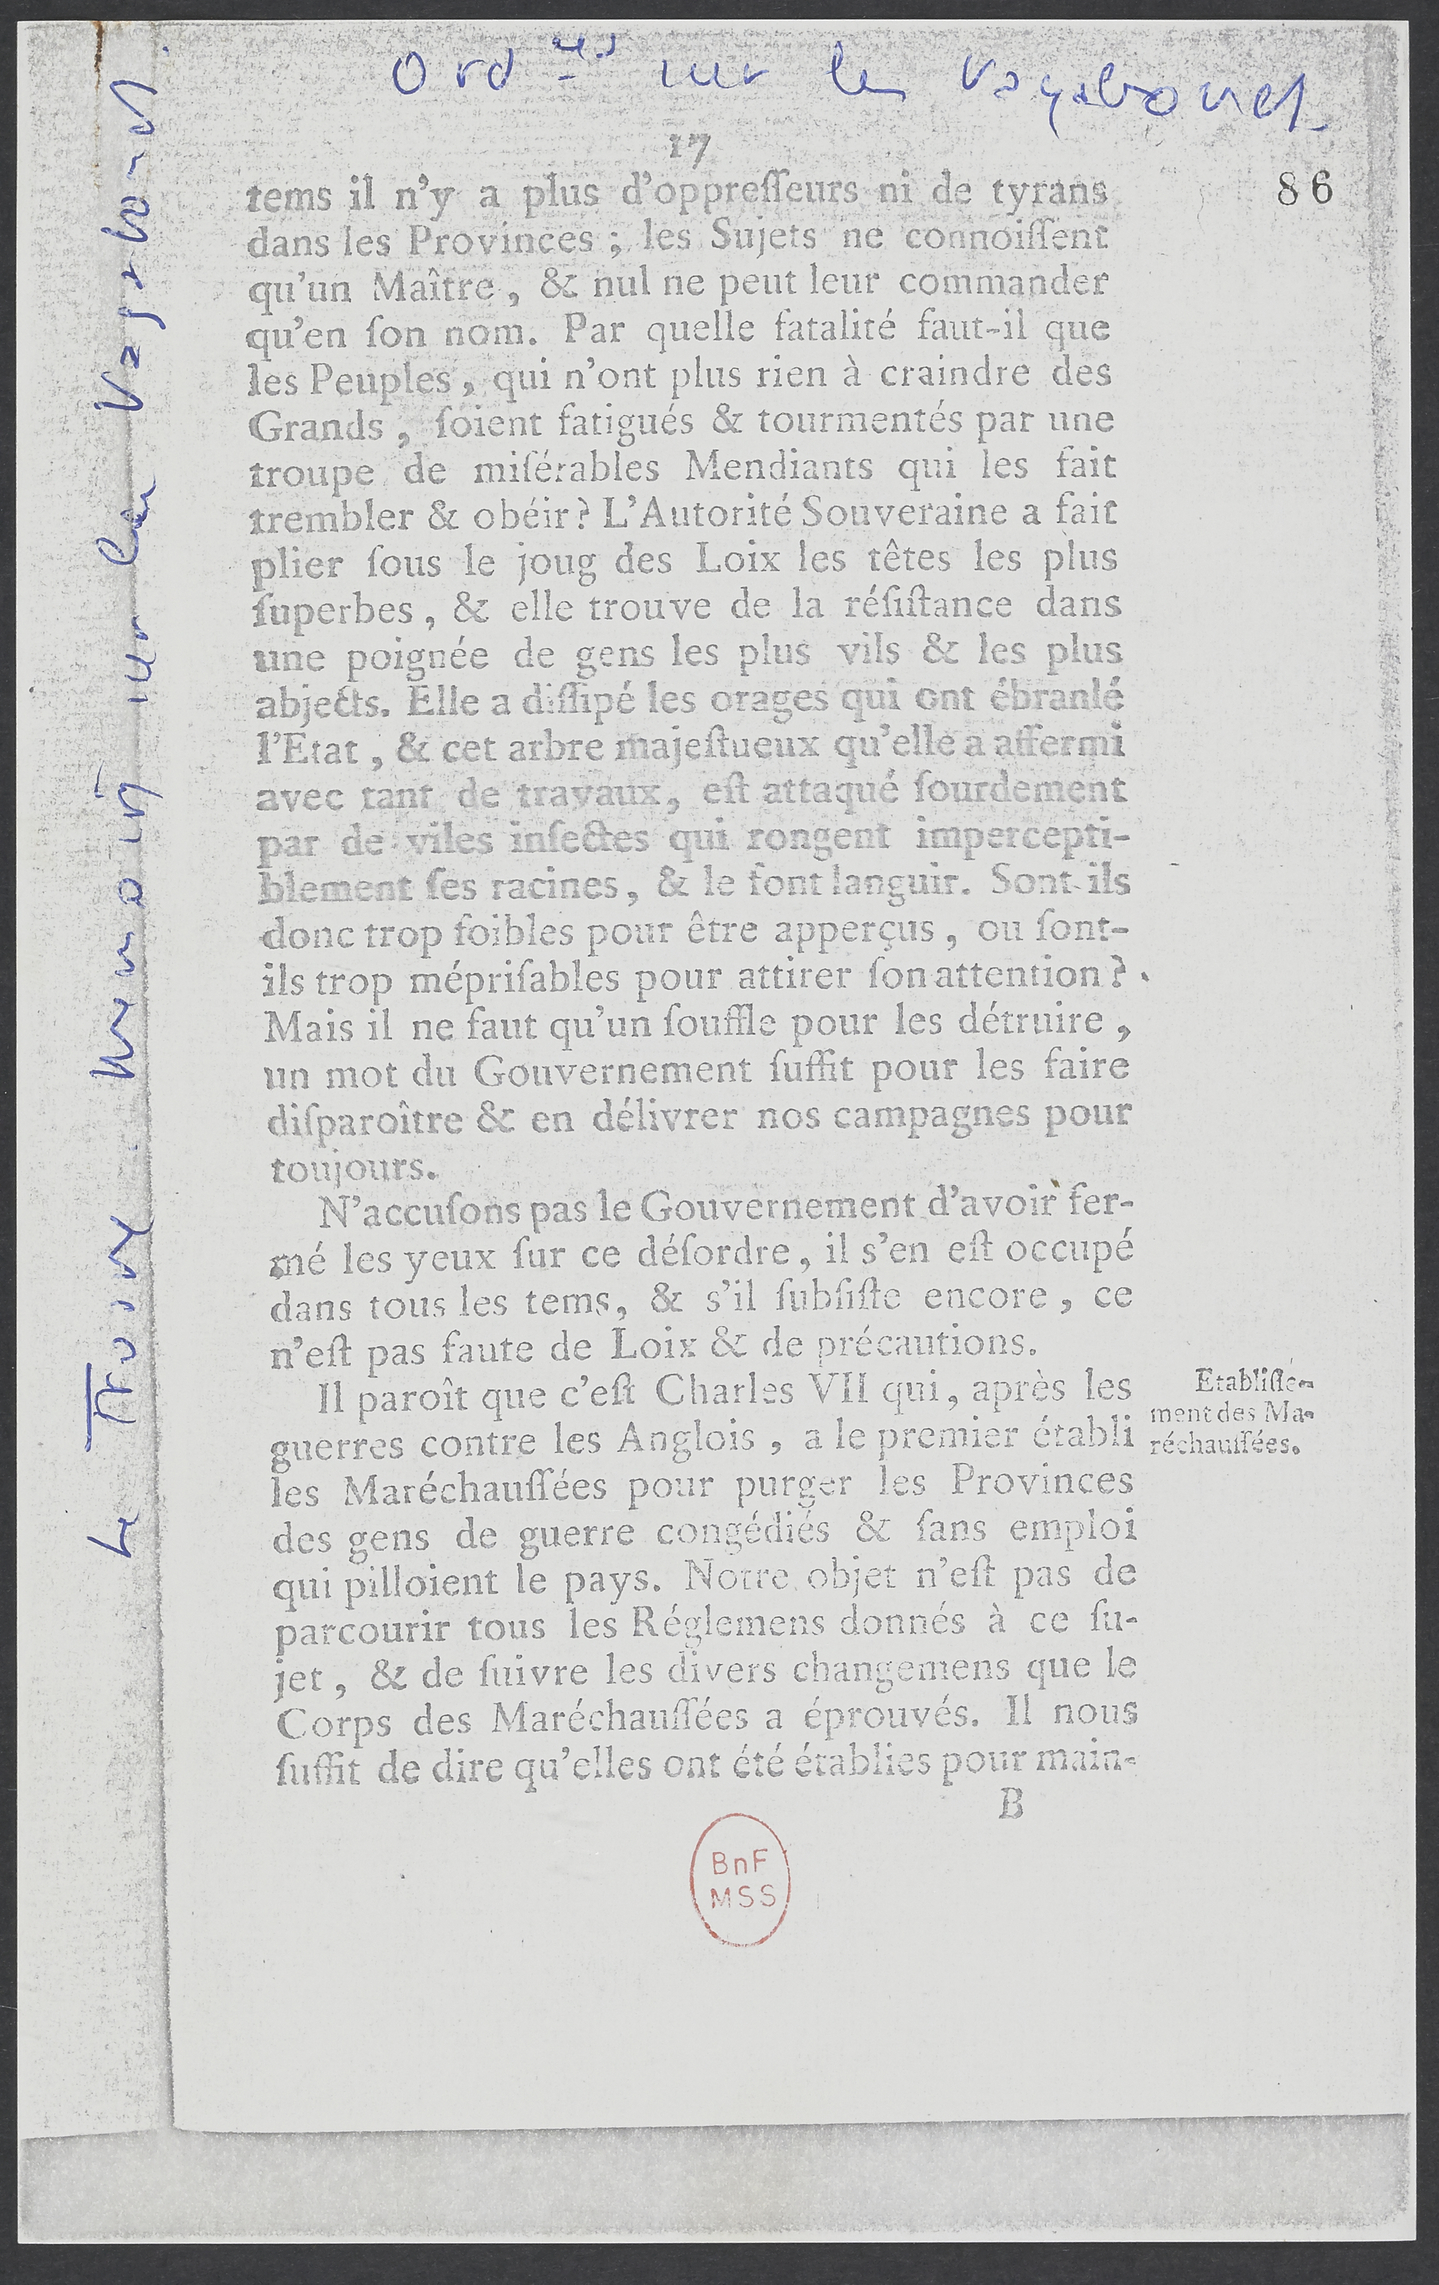 Ord ces sur les vagabonds
17
86
tems il n'y a plus d'oppreſſeurs ni de tyrans
dans les Provinces ; les Sujets ne connoiſſent
qu'un Maître , & nul ne peut leur commander
qu'en ſon nom. Par quelle fatalité faut-il que
les Peuples , qui n'ont plus rien à craindre des
Grands , ſoient fatigués & tourmentés par une
troupe de miſérables Mendiants qui les fait
trembler & obéir ? L'Autorité Souveraine a fait
plier ſous le joug des Loix les têtes les plus
ſuperbes , & elle trouve de la réſiſtance dans
une poignée de gens les plus vils & les plus
abjects. Elle a diſſipé les orages qui ont ébranlé
l'Etat , & cet arbre majeſtueux qu'elle a affermi
avec tant de travaux, eſt attaqué ſourdement
par de viles inſectes qui rongent impercepti-
blement ſes racines, & le font languir. Sont-ils
donc trop foibles pour être apperçus , ou ſont-
ils trop mépriſables pour attirer ſon attention ?
Mais il ne faut qu'un ſouffle pour les détruire ,
un mot du Gouvernement ſuffit pour les faire
diſparoître & en délivrer nos campagnes pour
toujours.
N'accuſons pas le Gouvernement d'avoir fer-
mé les yeux ſur ce déſordre, il s'en eſt occupé
dans tous les tems, & s'il ſubſiſte encore , ce
n'eſt pas faute de Loix & de précautions.
Il paroît que c'eſt Charles VII qui, après les
guerres contre les Anglois , a le premier établi
les Maréchauſſées pour purger les Provinces
des gens de guerre congédiés & ſans emploi
qui pilloient le pays. Notre objet n'eſt pas de
parcourir tous les Réglemens donnés à ce ſu-
jet , & de ſuivre les divers changemens que le
Corps des Maréchauſſées a éprouvés. Il nous
ſuffit de dire qu'elles ont été établies pour main-
B
Etabliſſe-
ment des Ma-
réchauſſées.
Le Trosne. Memoire sur les vagabonds
BnF
MSS